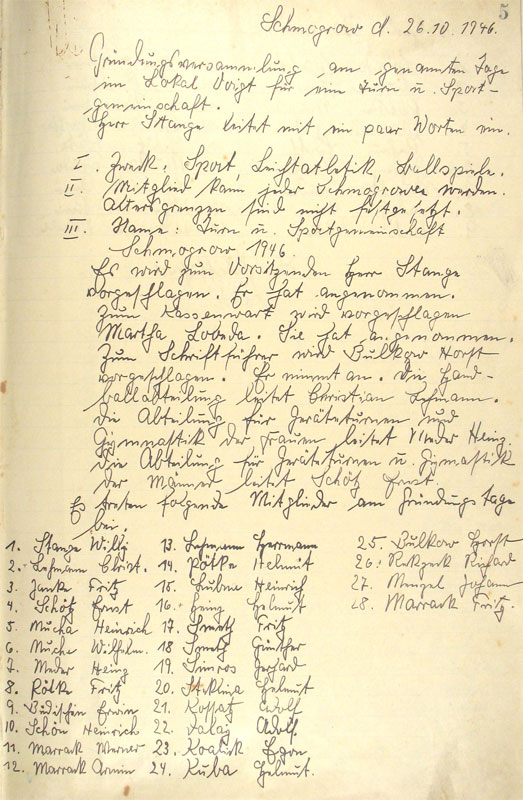 5
Schmogrow d. 26.10.1946.
Gründungsversammlung am genannten Tage
im Lokal Voigt für eine Turn u. Sport-
gemeinschaft.
Herr Stange leitet mit ein paar Worten ein.
I. Zweck: Sport, Leichtathletik, Ballspiele.
II. Mitglied kann jeder Schmogrower werden.
Altersgrenzen sind nicht festgesetzt.
III. Name: Turn u. Sportgemeinschaft
Schmogrow 1946.
Es wird zum Vorsitzenden Herr Stange
vorgeschlagen. Er hat angenommen.
Zum Kassenwart wird vorgeschlagen
Martha Lobeda. Sie hat angenommen.
Zum Schriftführer wird Bulkow Horst
vorgeschlagen. Er nimmt an. Die Hand-
ballabteilung leitet Christian Lehmann.
Die Abteilung für Geräteturnen und
Gymnastik der Frauen leitet Meder Heinz.
Die Abteilung für Geräteturnen u. Gymastik
der Männer leitet Schötz Ernst.
Es treten folgende Mitglieder am Gründungstage
bei.
1. Stange Willy
2. Lehmann Christ.
3. Janke Fritz
4. Schötz Ernst
5. Mucha Heinrich
6. Mucha Wilhelm.
7. Meder Heinz
8. Rötke Fritz
9. Büdischen Erwin
10. Schön Heinrich
11. Marrack Werner
12. Marrack Armin
13. Lehmann Herrmann
14. Rötke Helmut
15. Hübner Heinrich
16. Heinz Helmut
17. Smeth Fritz
18. Smeth Günther
19. Simros Gerhard
20. Helmut
21. Kossatz Adolf
22. Adolf.
23. Koalick Egon
24. Kuba Helmut.
25. Bulkow Horst
26. Richard
27. Menzel Johann
28. Marrack Fritz.